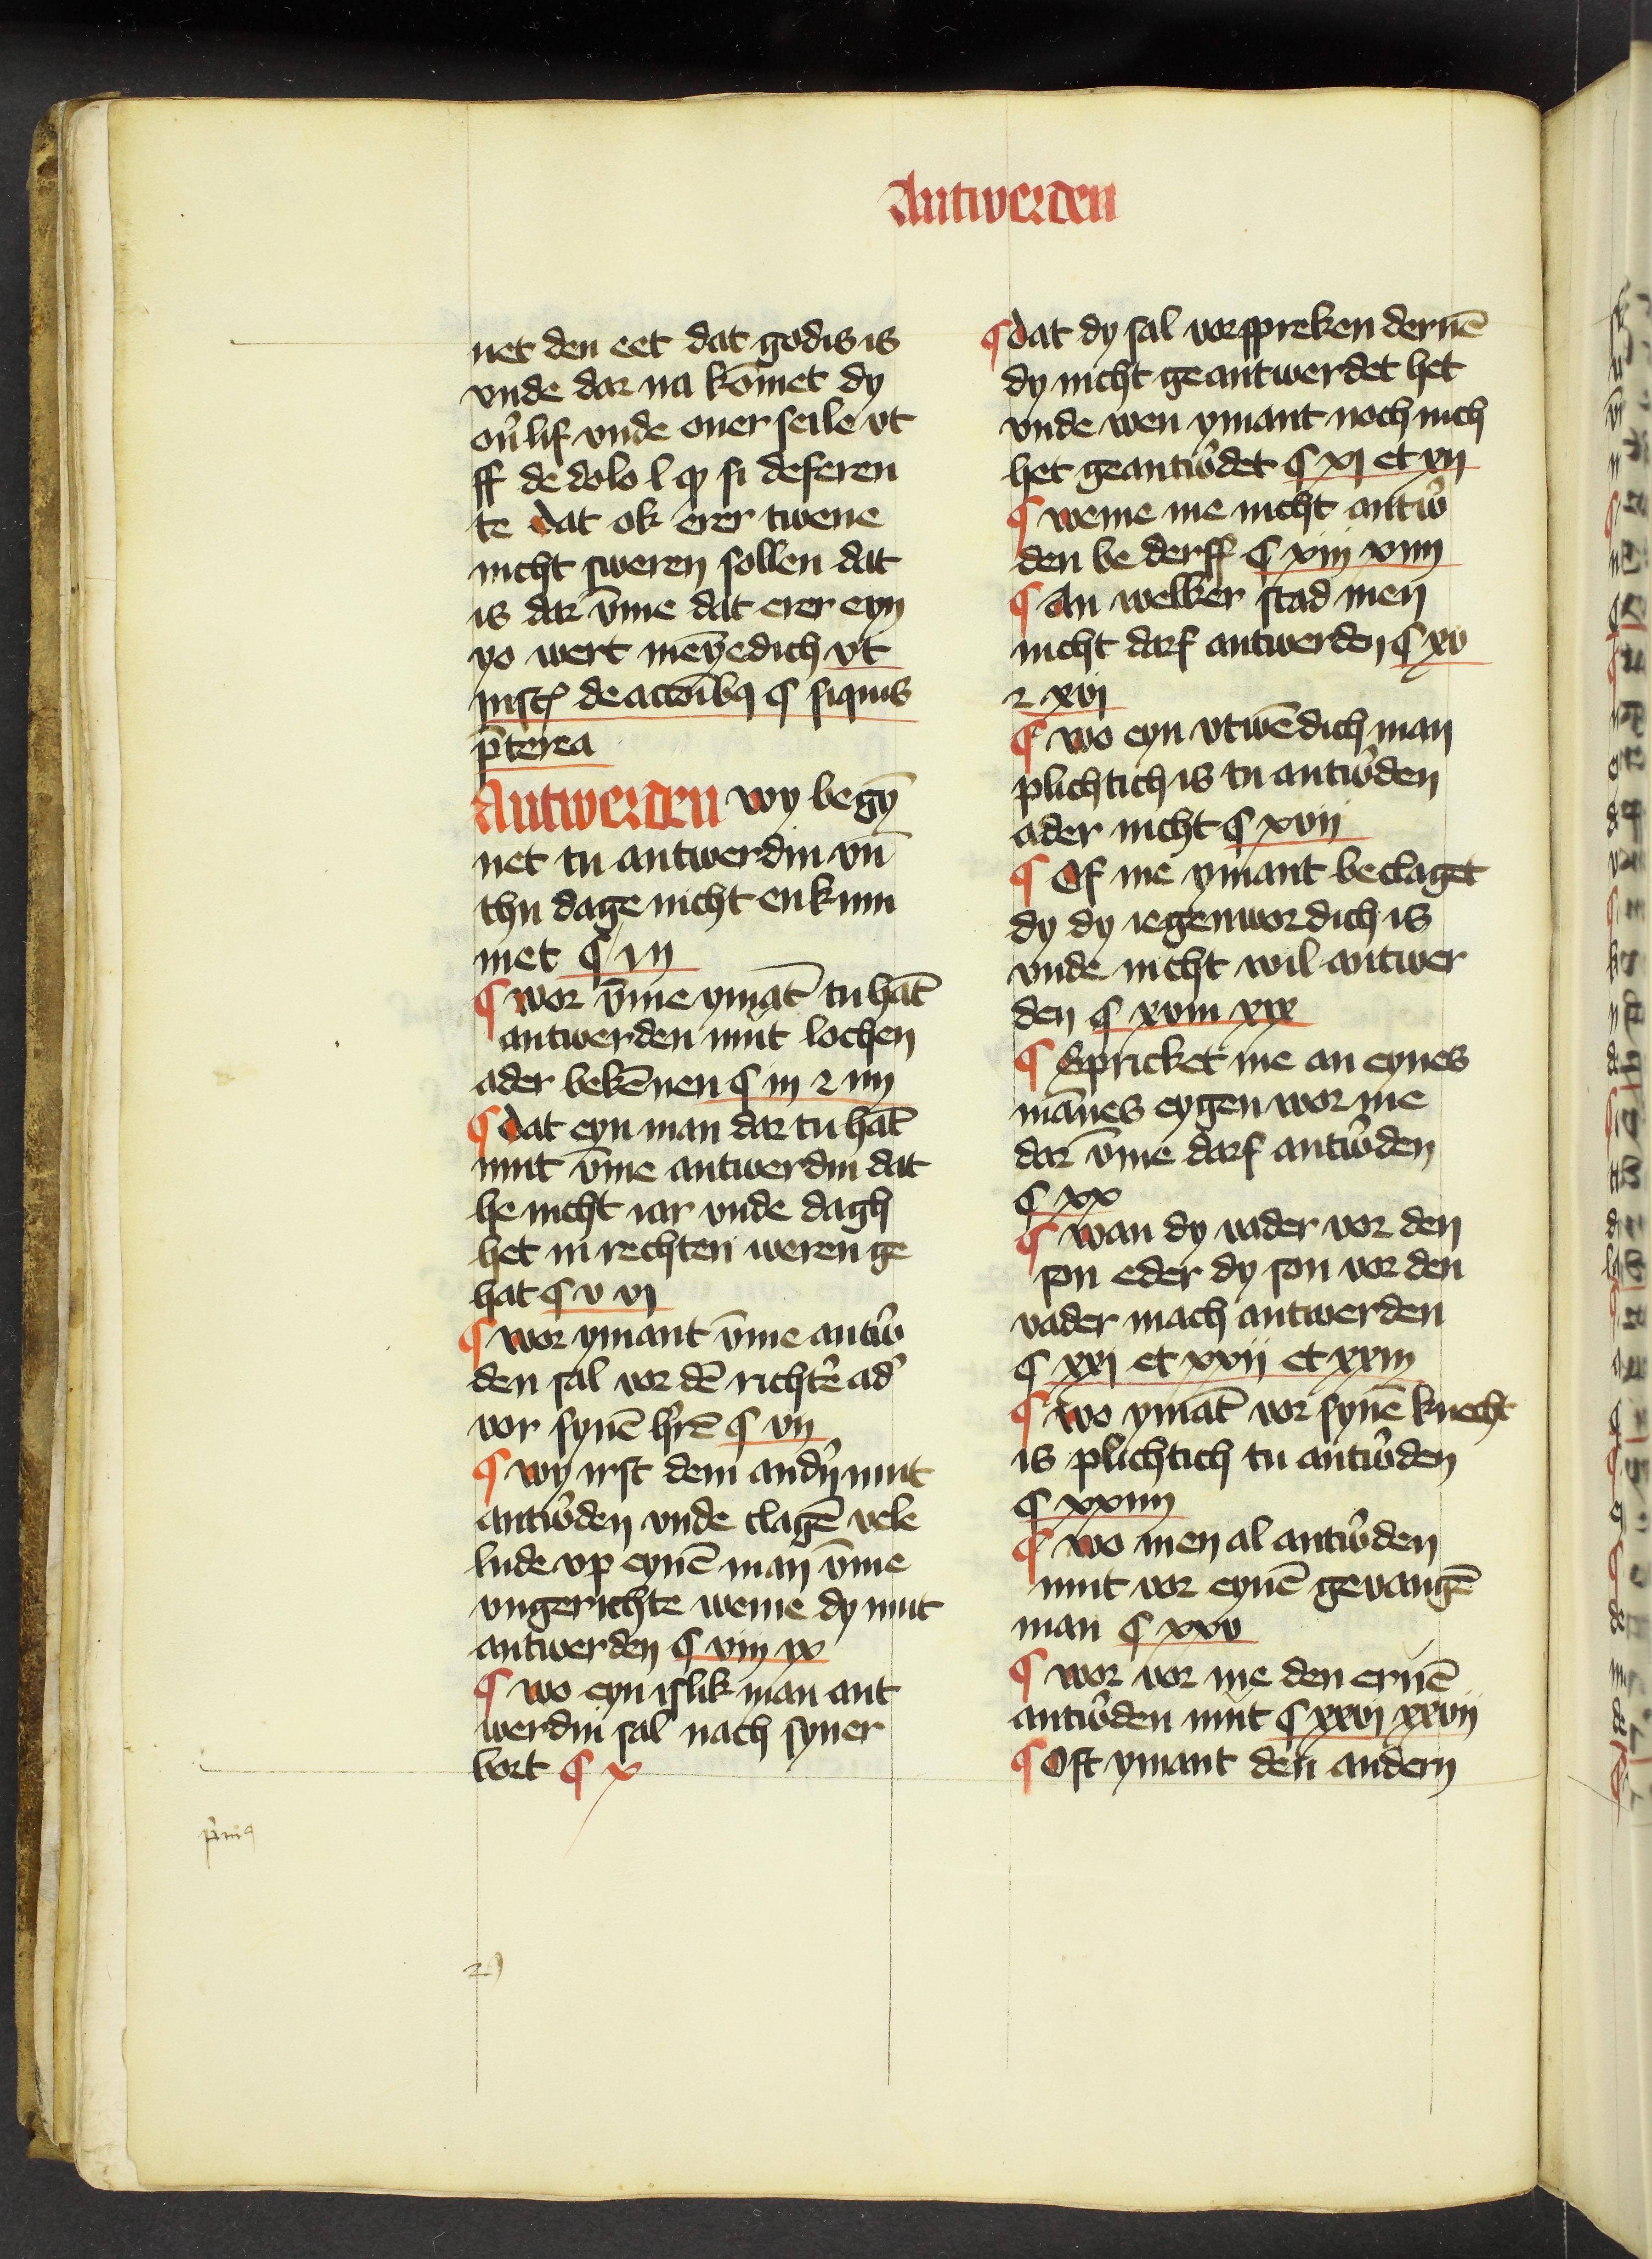 Antwerden
net den eet dat godis is
vnde dar na kōmet dy
ou̓ lif vnde ouer seile vt
ff de dolo l qꝫ si deferen
te dat ok erer twene
nicht sweren sollen dat
is dar v̄me dat erer eyn
yo wert mēyedich vt
inst de acc̄oibꝫ ¶ siquis
p̄terea
Antwerden wy begȳ
net tu antwerdin vn̄
thu dage nicht enkum
met ¶ i ij
¶ wor v̄me ymāt tu hāt
antwerden mut lochen
ader bekēnen ¶ iij ⁊ iiij
¶ dat eyn man dar tu hāt
mut v̄me antwerdin dat
he nicht iar vnde dagh
het in rechten weren ge
hat ¶ v vj
¶ wor ymant v̄me antw̓
den sal vor dē richtē ad̓
vor synē h̓rē ¶ vij
¶ wy irst dem andn̓ mut
antw̓den vnde clagē vele
lude vp eynē man v̄me
vngerichte weme dy mut
antwerden ¶ viij ix
¶ wo eyn islik man ant
werdin sal nach syner
bort ¶ x
¶ dat dy sal vorspreken dernē
dy nicht geantwerdet het
vnde wen ymant noch nich
het geantw̓det ¶ xj et xij
¶ weme me nicht antw̓
den be derff ¶ xiij xiiij
¶ An welker stad men
nicht darf antwerden ¶ xv
⁊ xvj
¶ wo eyn vtwēdich man
plichtich is tu antw̓den
ader nicht ¶ xvij
¶ Of me ymant beclaget
dy dy iegenwordich is
vnde nicht wil antwer
den ¶ xviij xix
¶ Spricket me an eynes
mānes eygen wor me
dar v̄me darf antw̓den
¶ xx
¶ wan dy vader vor den
son eder dy son vor den
vader mach antwerden
¶ xxj et xxij et xxiij
¶ wo ymāt vor synē knecht
is plichtich tu antw̓den
¶ xxiiij
¶ wo men al antw̓den
mut vor eynē gevangē
man ¶ xxv
¶ wor vor me den ernē
antw̓den mut ¶ xxvj xxvij
¶ Oft ymant den andern
p̓mꝰ